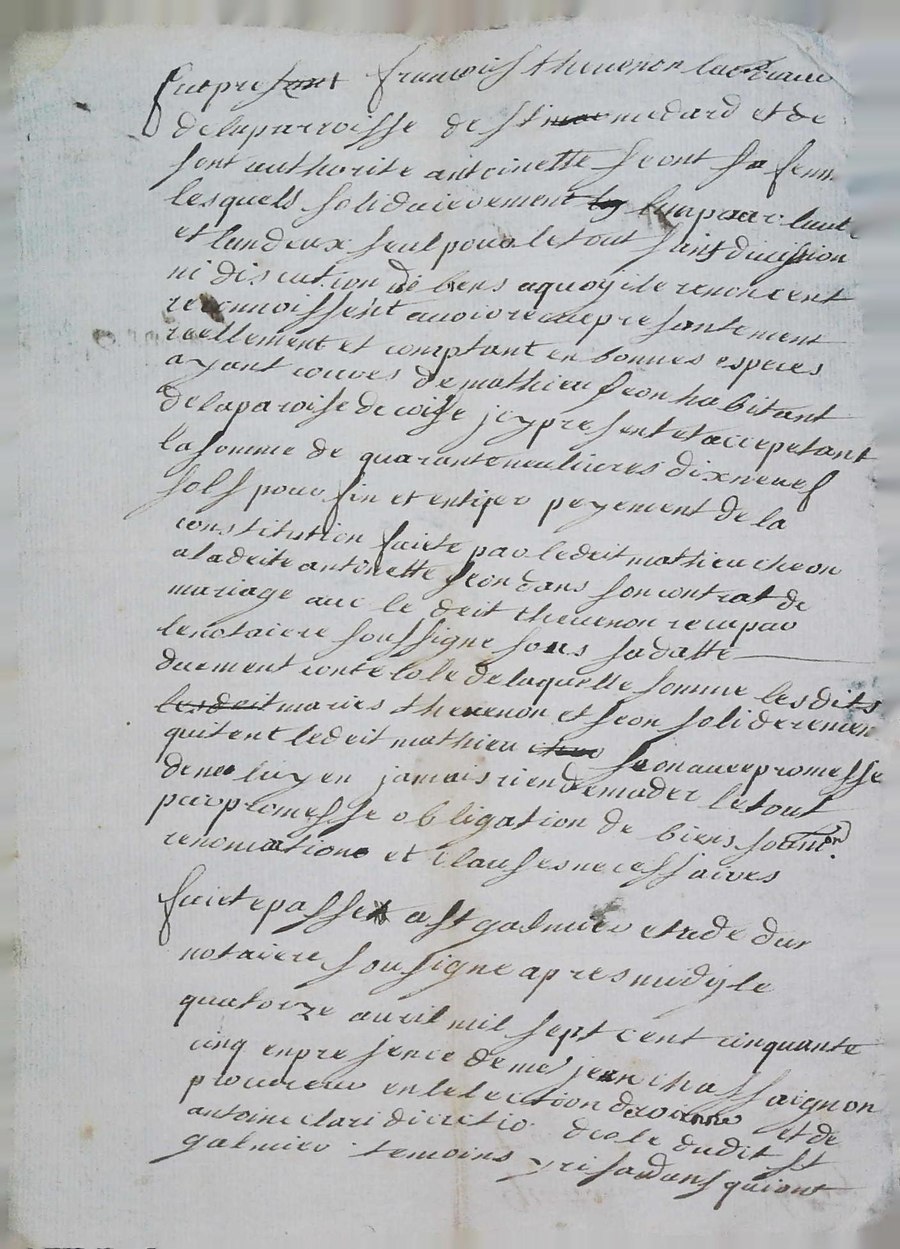 fut present françois thevenon laboureur
de la parroisse de st medard et de
sont authorite antoinette seont sa femm
lesquels solidairement lun pour lautre
et lun deux seul pour le tout sans division
ni discution de biens a quoy ils renoncent
reconnoissent avoir receu presantement
reellement et comptant en bonnes especes
ayant couors de mathieu seon habitant
de la paroisse de coise jcy present et accepetant
la somme de quarante neuf livres dix neuf
sols pour fin et entijer peyement de la
constitution faiete par le deit mathieu cheon
a la deite antoinette seon dans son contrat de
mariage avec le deit thevenon recu par
le notaiere soussigne sous sa datte
duement contrôlé de laquelle somme les dits
lesdeit maries thevenon et seon soliderement
quitent ledeit mathieu seon avec promesse
de ne luy en jamais rien demader le tout
par promesse obligation de biens soumon
renonciations et clauses necessaires
faiete passe a st galmier etude dur
notaiere sousigne apres midy le
quatorze avril mil sept cent cinquante
cinq en presence de me jean chassaignon
procureur en lelection de roanne et de
antoine clari directeo decole dudit st
galmier temoins qui ont